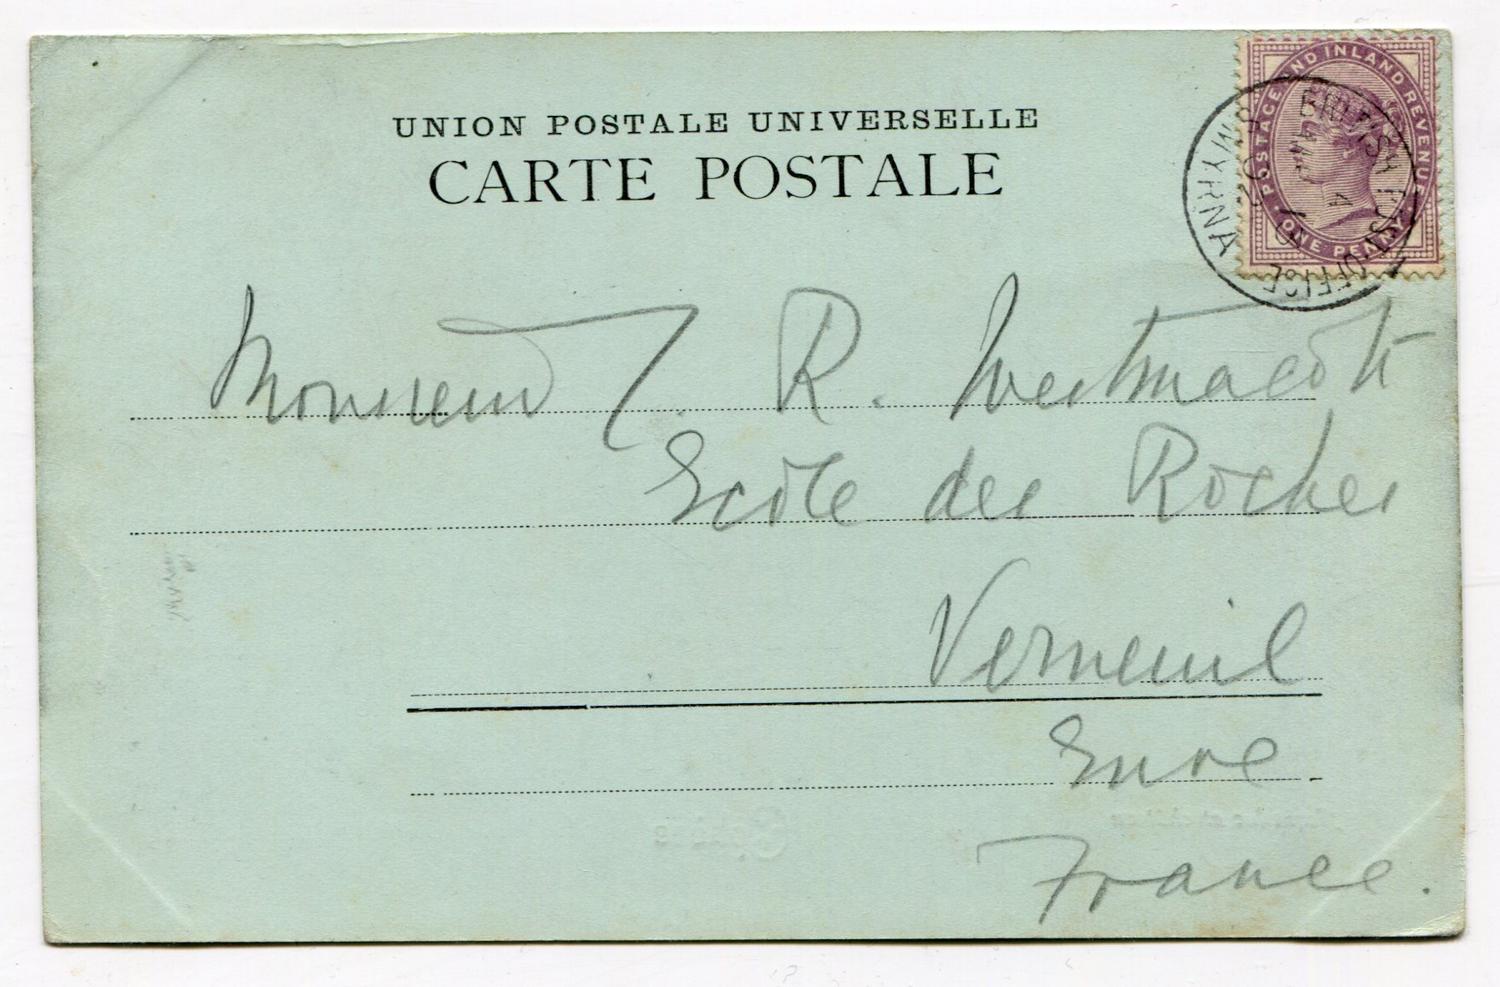 UNION POSTALE UNIVERSELLE
CARTE POSTALE
POSTAGE AND INLAND REVENUE
ONE PENNY
BRITISH POST OFFICE
SMYRNA
4
02
Monsieur J. R. Westmacott
Ecole des Roches
Verneuil
Eure
France.